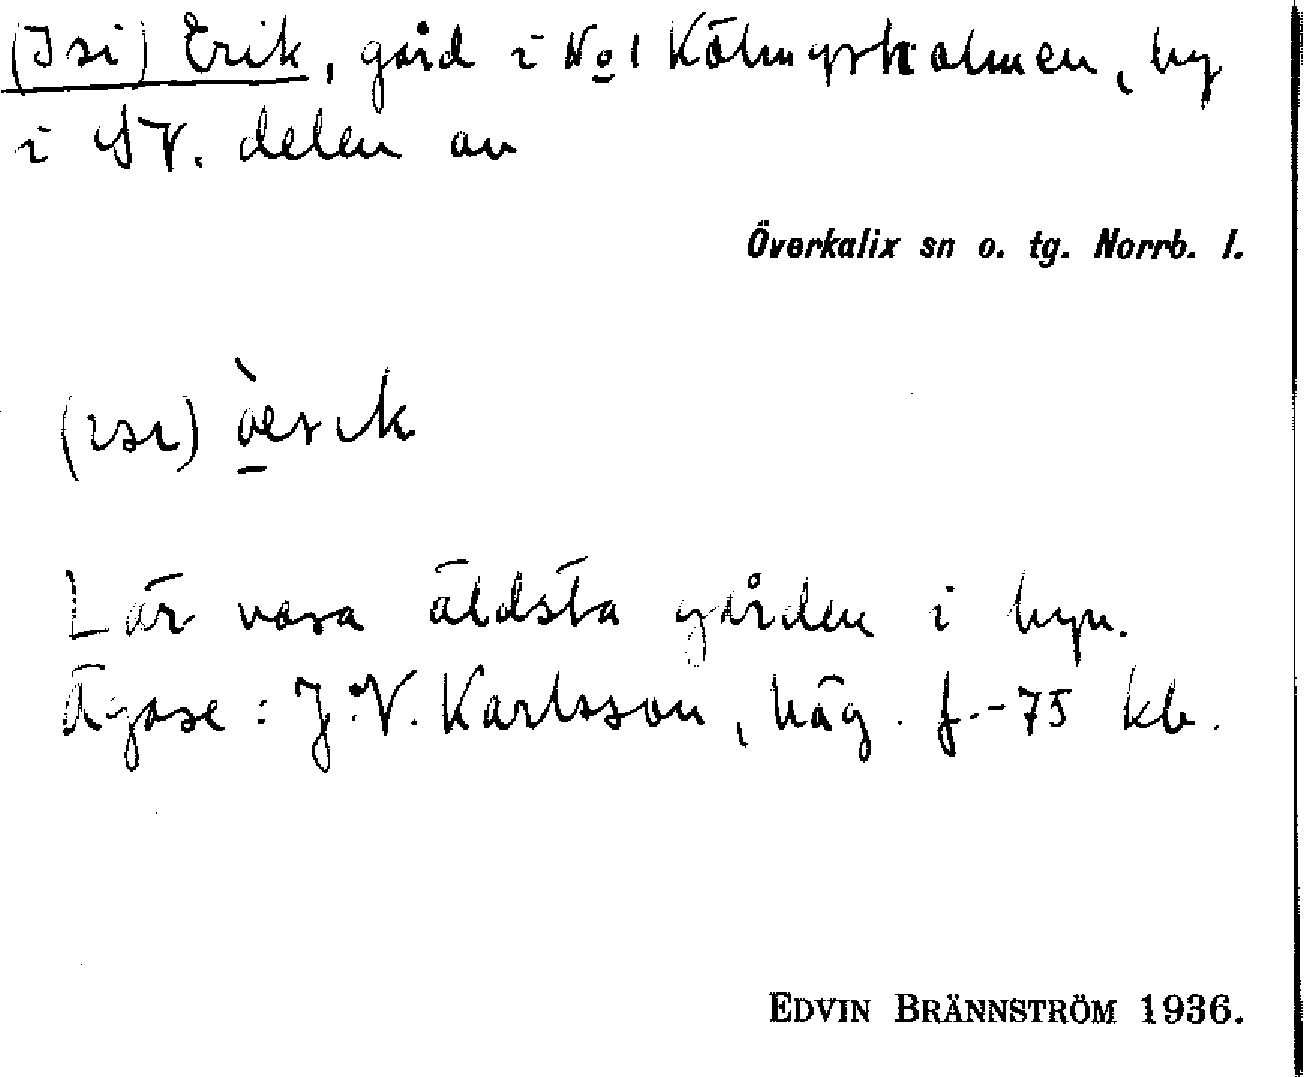 (Isi) Erik, gård i No 1 Kölmjärkholmen, by
i SV. delen av
Överkalix sn o. tg. Norrb. l.
(ɪsɪ)
Lär vara äldsta gården i byn.
Ägare: J. V. Karlsson, häg. f.-75 kb.
EDVIN BRÄNNSTRÖM 1936.